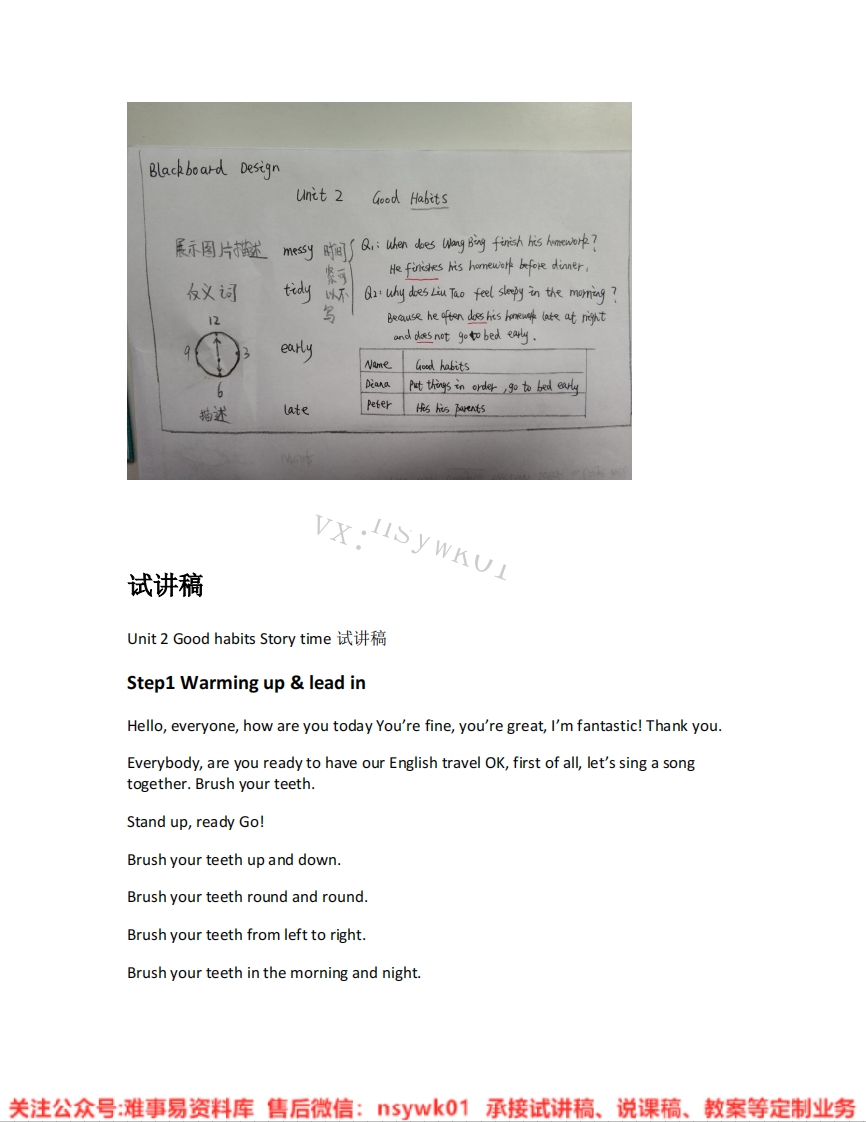 Blackboard Design
Unit 2 Good Habits
展示图片描述 messy 时间紧可以不写 Q1: When does Wang Bing finish his homework?
He finishes his homework before dinner.
反义词 tidy Q2: Why does Liu Tao feel sleepy in the morning?
Because he often does his homework late at night
and does not go to bed early.
12
9 3 early
6
Name Good habits
Diana Put things in order, go to bed early
Peter his parents
描述 late
VX:nsywk01
试讲稿
Unit 2 Good habits Story time 试讲稿
Step1 Warming up & lead in
Hello, everyone, how are you today You’re fine, you’re great, I’m fantastic! Thank you.
Everybody, are you ready to have our English travel OK, first of all, let’s sing a song
together. Brush your teeth.
Stand up, ready Go!
Brush your teeth up and down.
Brush your teeth round and round.
Brush your teeth from left to right.
Brush your teeth in the morning and night.
关注公众号:难事易资料库 售后微信：nsywk01 承接试讲稿、说课稿、教案等定制业务